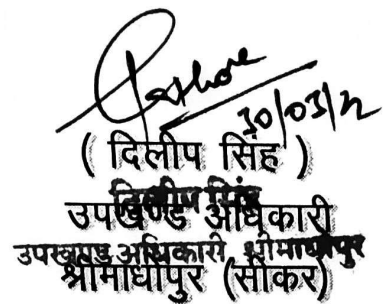 30/03/22
( दिलीप सिंह )
दिलीप सिंह
उपखण्ड अधिकारी
उपखण्ड अधिकारी श्रीमाधोपुर
श्रीमाधोपुर (सीकर)